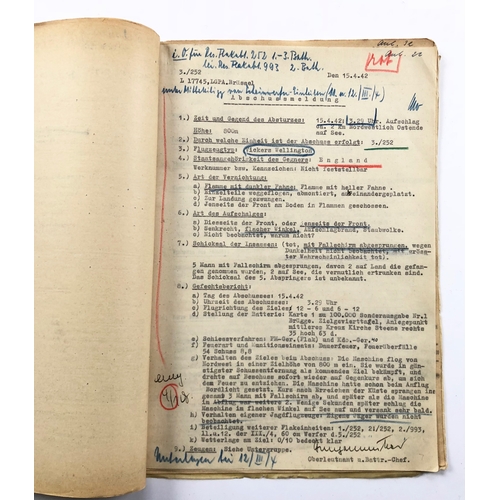 i.V. für Res. Flakabt. 252 1.-3. Battr.
bei. Res. Flakabt. 993 2. Batt.
rot
5./252
L 17745, LGPA. Brüssel
Den 15.4.42
Abschussmeldung
1.) Zeit und Gegend des Absturzes: 15.4.42; 3.29 Uhr, Aufschlag
ca. 2 km Nordwestlich Ostende
Höhe: 800m auf See.
2.) Durch welche Einheit ist der Abschuss erfolgt: 5./252
3.) Flugzeugtyp: Vickers Wellington
4.) Staatsangehörigkeit des Gegners: England
Werknummer bzw. Kennzeichen: Nicht feststellbar
5.) Art der Vernichtung:
a) Flamme mit dunkler Fahne; Flamme mit heller Fahne
b) Einzelteile weggeflogen, abmontiert, auseinandergeplatzt.
c) Zur Landung gezwungen.
d) Jenseits der Front am Boden in Flammen geschossen.
6.) Art des Aufschlages:
a) Diesseits der Front, oder jenseits der Front.
b) Senkrecht, flacher Winkel, Aufschlagbrand, Staubwolke.
c) Nicht beobachtet, warum nicht?
7.) Schicksal der Insassen: (tot, mit Fallschirm abgesprungen, wegen
Dunkelheit nicht beobachtet, mit grösster
Wahrscheinlichkeit tot).
5 Mann mit Fallschirm abgesprungen, davon 2 auf Land die gefangen
genommen wurden, 2 auf See, die vermutlich ertrunken sind.
Das Schicksal des 5. Abspringers ist unbekannt.
8.) Gefechtsbericht:
a) Tag des Abschusses: 15.4.42
b) Uhrzeit des Abschusses: 3.29 Uhr
c) Flugrichtung des Zieles: 12 - 6 und 6 - 12
d) Stellung der Batterie: Karte 1 : 100 000 Sonderausgabe Nr.1
Brügge. Zielgevierttafel, Anlegepunkt
mittleres Kreuz Kirche Steene rechts
35 hoch 63 d.
e) Schiessverfahren: FM-Ger.(Flak) und Kdo.-Ger.
f) Feuerart u. Munitionseinsatz: Dauerfeuer, Feuerüberfälle
54 Schuss 8,8
g) Verhalten des Zieles beim Abschuss: Die Maschine flog von
Nordwest in einer Zielhöhe von 800 m ein. Sie wurde in
günstigster Schussentfernung als kommendes Ziel bekämpft, und
drehte auf Beschuss sofort wieder auf Gegenkurs ab, um sich
dem Feuer zu entziehen. Die Maschine hatte schon beim Anflug
Brandlicht gesetzt. Kurz nach Erreichen der Küste sprangen
5 Mann mit Fallschirm ab. Die Maschine
im Abflug auf weitere 2. Wenige Sekunden später schlug die
Maschine in flachen Winkel auf See auf und versank sehr bald.
h) Verhalten eigener Jagdflugzeuge: Eigene Jäger wurden nicht
beobachtet.
i) Beteiligung weiterer Flakeinheiten: 1./252, 2./252, 2./993,
11.u.12. der III./4, 60 cm Werfer d. 5./252
k) Wetterlage am Ziel: 0/10 bedeckt klar
9.) Zeugen: Siehe Untergruppe.
Unterlagen bei 12/III/4
Oberleutnant u. Battr.-Chef.